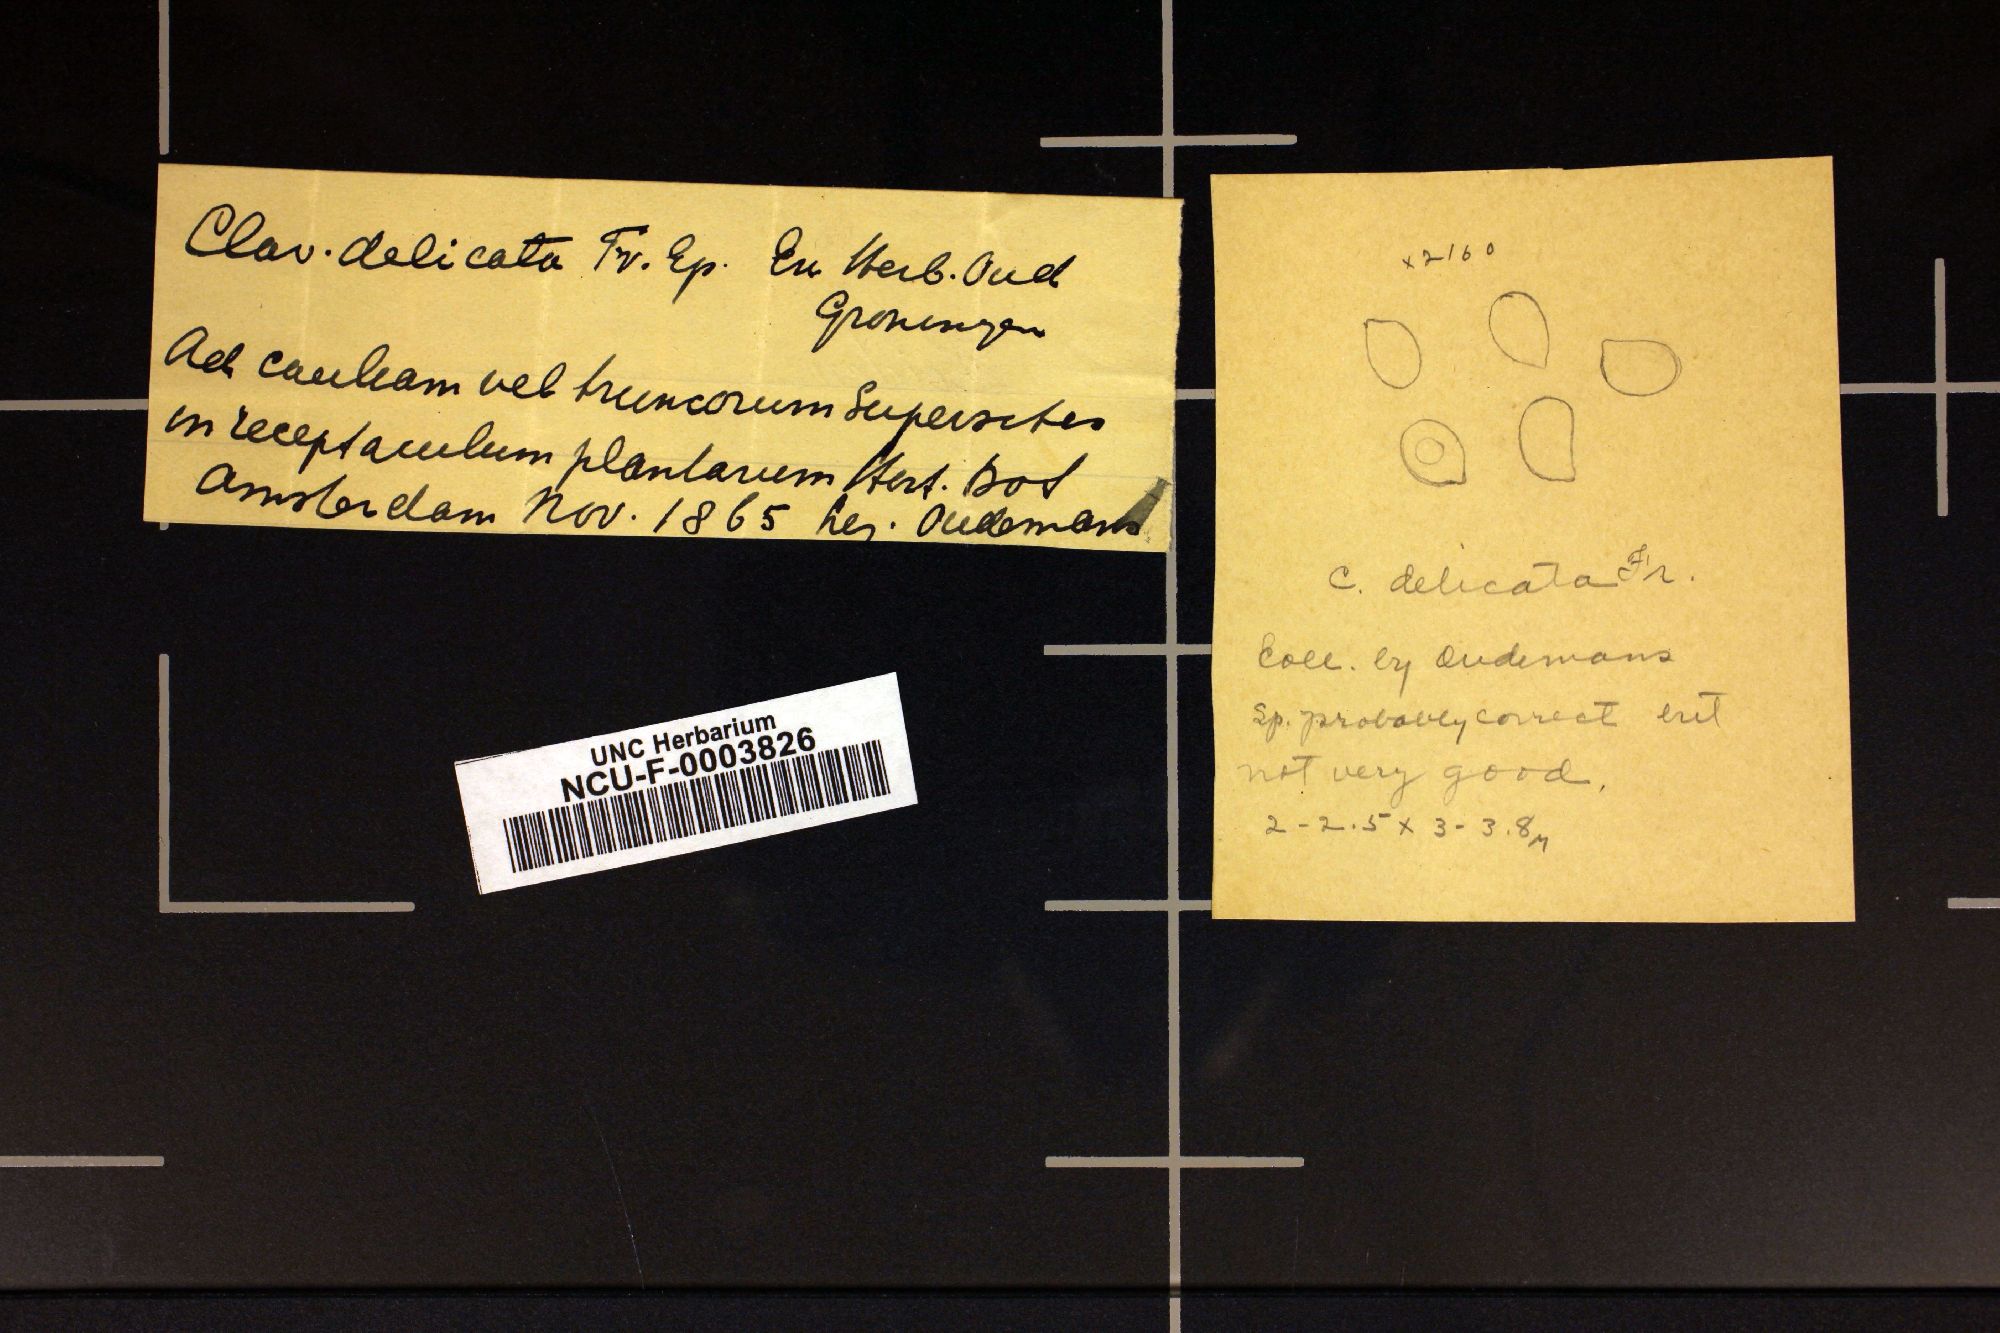 Clav. delicata Fr. Ep. Ex Herb. Oud
Groningen
Ad cauleam vel truncorum Superstes
in receptaculum plantarum Hort. Bot
Amsterdam Nov. 1865 leg. Oudemans
UNC Herbarium
NCU-F-0003826
x2160
C. delicata Fr.
Coll. by Oudemans
Sp. probably correct but
not very good.
2-2.5 x 3-3.8µ